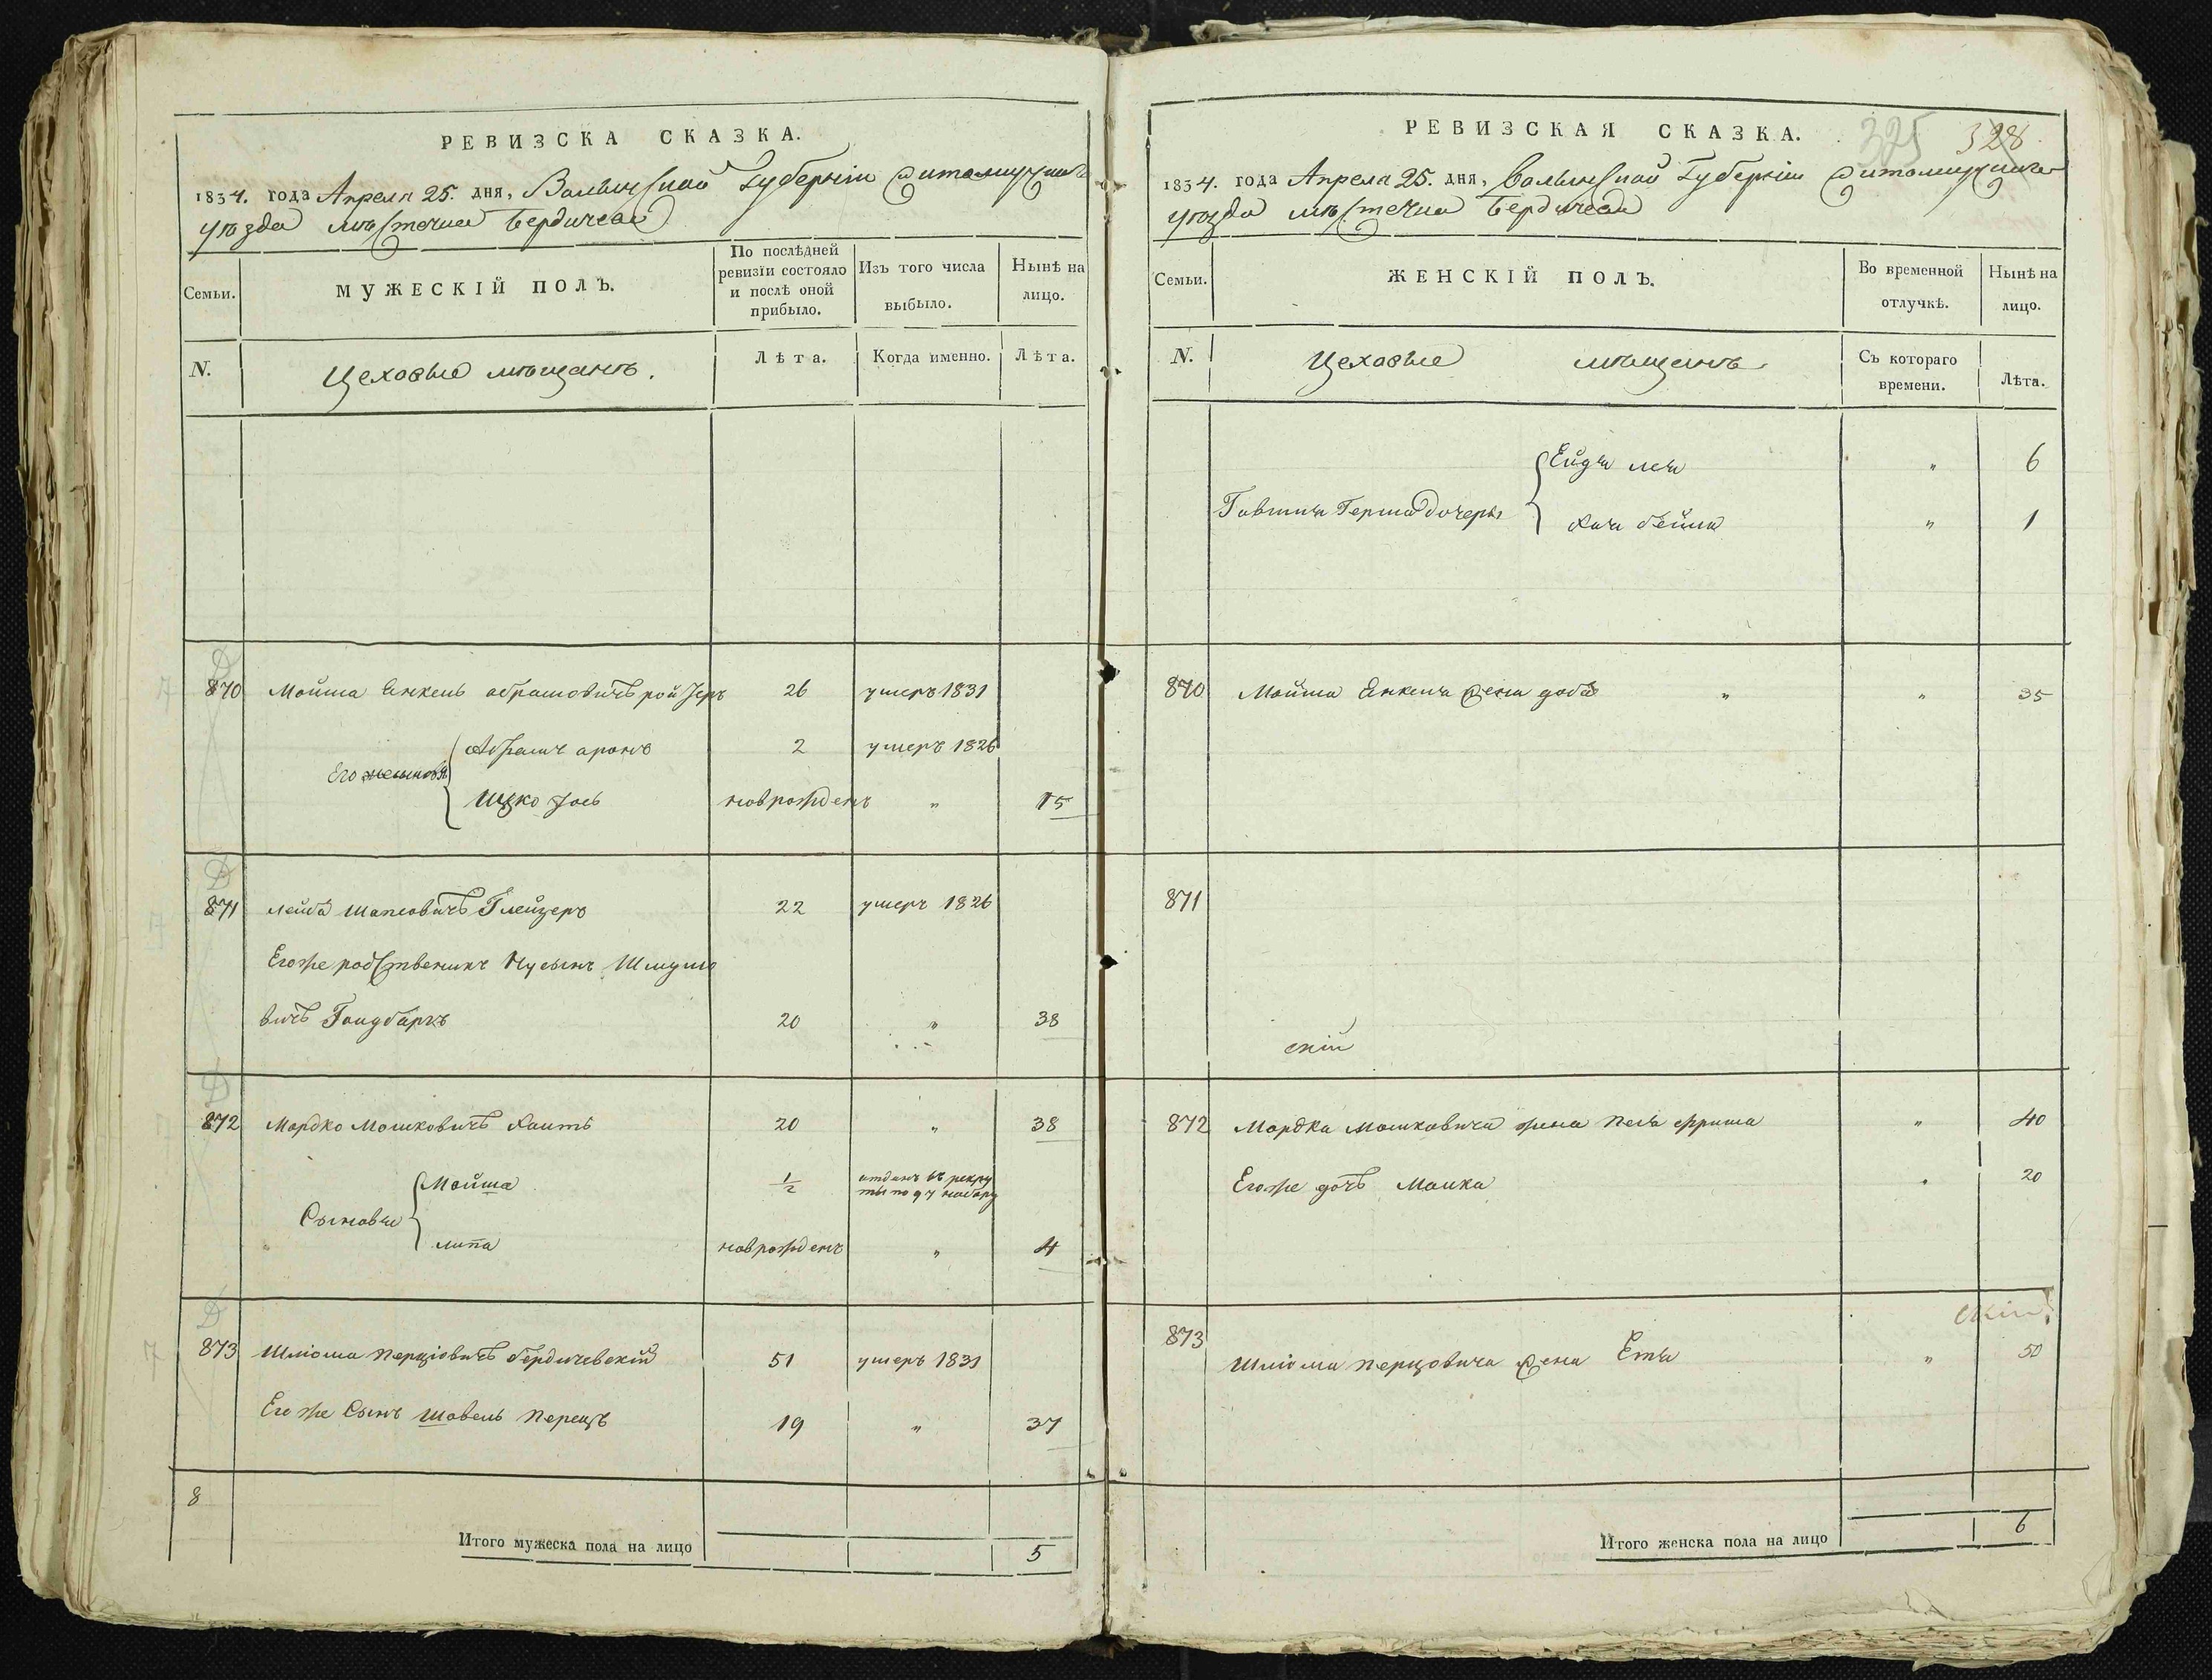 РЕВИЗСКА СКАЗКА.
1834. года Апреля 25. дня, Волынской Губернiи Житомирскаго
уѣзда мѣстечка Бердичева
Семьи.
МУЖЕСКІЙ ПОЛЪ.
По послѣдней ревизіи состояло и послѣ оной прибыло.
Изъ того числа выбыло.
Нынѣ на лицо.
N.
Цеховые мѣщанѣ.
Лѣта.
Когда именно.
Лѣта.
870 Мойша Янкель абрамовичъ 26 умеръ 1831
Его
Абрамъ аронъ 2 умеръ 1826
Ицко новрожденъ " 15
871 лейба Шапсовичъ Глейзеръ 22 умеръ 1826
Егоже родственикъ Нусынъ Шмуло
вичъ 20 " 38
872 Мордко Мошковичъ 20 " 38
Сыновья
Мойша 1/2 отданъ въ рекру
ты по 94 набору
липа новрожденъ " 4
873 Шліома Перціовичъ бердичевскій 51 умеръ 1831
Его же Сынъ Шовель Перецъ 19 " 37
8
Итого мужеска пола на лицо 5
РЕВИЗСКАЯ СКАЗКА.
325 328
1834. года Апреля 25. дня, Волынской Губернiи Житомирскаго
уѣзда мѣстечка Бердичева
Семьи.
ЖЕНСКІЙ ПОЛЪ.
Во временной отлучкѣ.
Нынѣ на лицо.
N.
Цеховые мѣщанѣ
Съ котораго времени.
Лѣта.
Герша Дочеры
Ейдя лея " 6
Хая бейла " 1
870 Мойша Янкеля жена доба " " 35
871
скій
872 Мордка Мошковича жена Песя фрима " 40
Егоже дочъ Малка " 20
скій
873 Шліома Перцовича жена Етя " 50
Итого женска пола на лицо 6